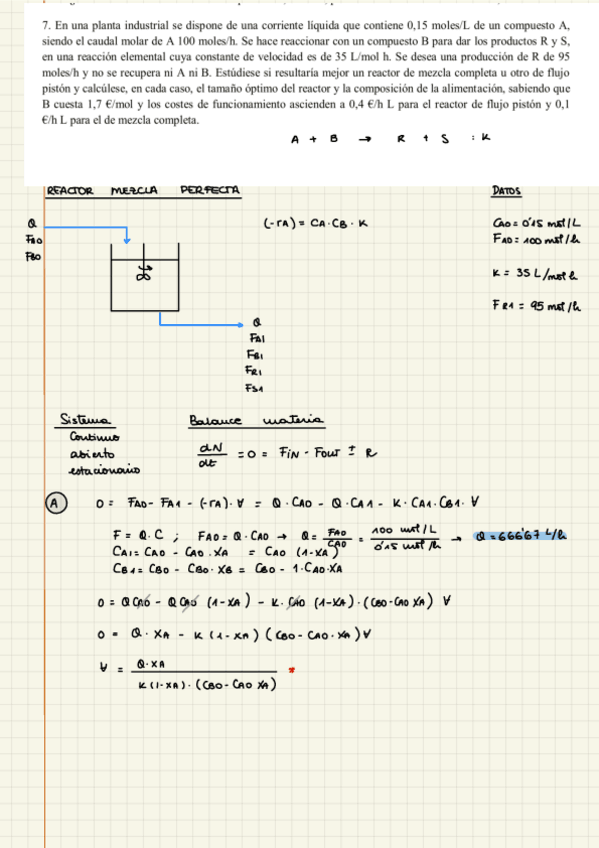 7. En una planta industrial se dispone de una corriente líquida que contiene 0,15 moles/L de un compuesto A,
siendo el caudal molar de A 100 moles/h. Se hace reaccionar con un compuesto B para dar los productos R y S,
en una reacción elemental cuya constante de velocidad es de 35 L/mol h. Se desea una producción de R de 95
moles/h y no se recupera ni A ni B. Estúdiese si resultaría mejor un reactor de mezcla completa u otro de flujo
pistón y calcúlese, en cada caso, el tamaño óptimo del reactor y la composición de la alimentación, sabiendo que
B cuesta 1,7 €/mol y los costes de funcionamiento ascienden a 0,4 €/h L para el reactor de flujo pistón y 0,1
€/h L para el de mezcla completa.
A + B → R + S : K
REACTOR MEZCLA PERFECTA
DATOS
Q
FA0
FB0
(-rA) = CA · CB · K
CA0 = 0'15 mol/L
FA0 = 100 mol/h
K = 35 L/mol h
FR1 = 95 mol/h
Q
FA1
FB1
FR1
FS1
Sistema
Continuo
abierto
estacionario
Balance materia
dN/dt = 0 = FIN - FOUT ± R
A 0 = FA0 - FA1 - (-rA) · V = Q · CA0 - Q · CA1 - K · CA1 · CB1 · V
F = Q · C ; FA0 = Q · CA0 → Q = FA0/CA0 = 100 mol/L / 0'15 mol/h → Q = 666'67 L/h
CA1 = CA0 - CA0 · XA = CA0 (1-XA)
CB1 = CB0 - CB0 · XB = CB0 - 1 · CA0 · XA
0 = Q CA0 - Q CA0 (1-XA) - K · CA0 (1-XA) · (CB0 - CA0 XA) V
0 = Q · XA - K (1-XA) (CB0 - CA0 · XA) V
V = Q · XA / K (1-XA) · (CB0 - CA0 XA) *